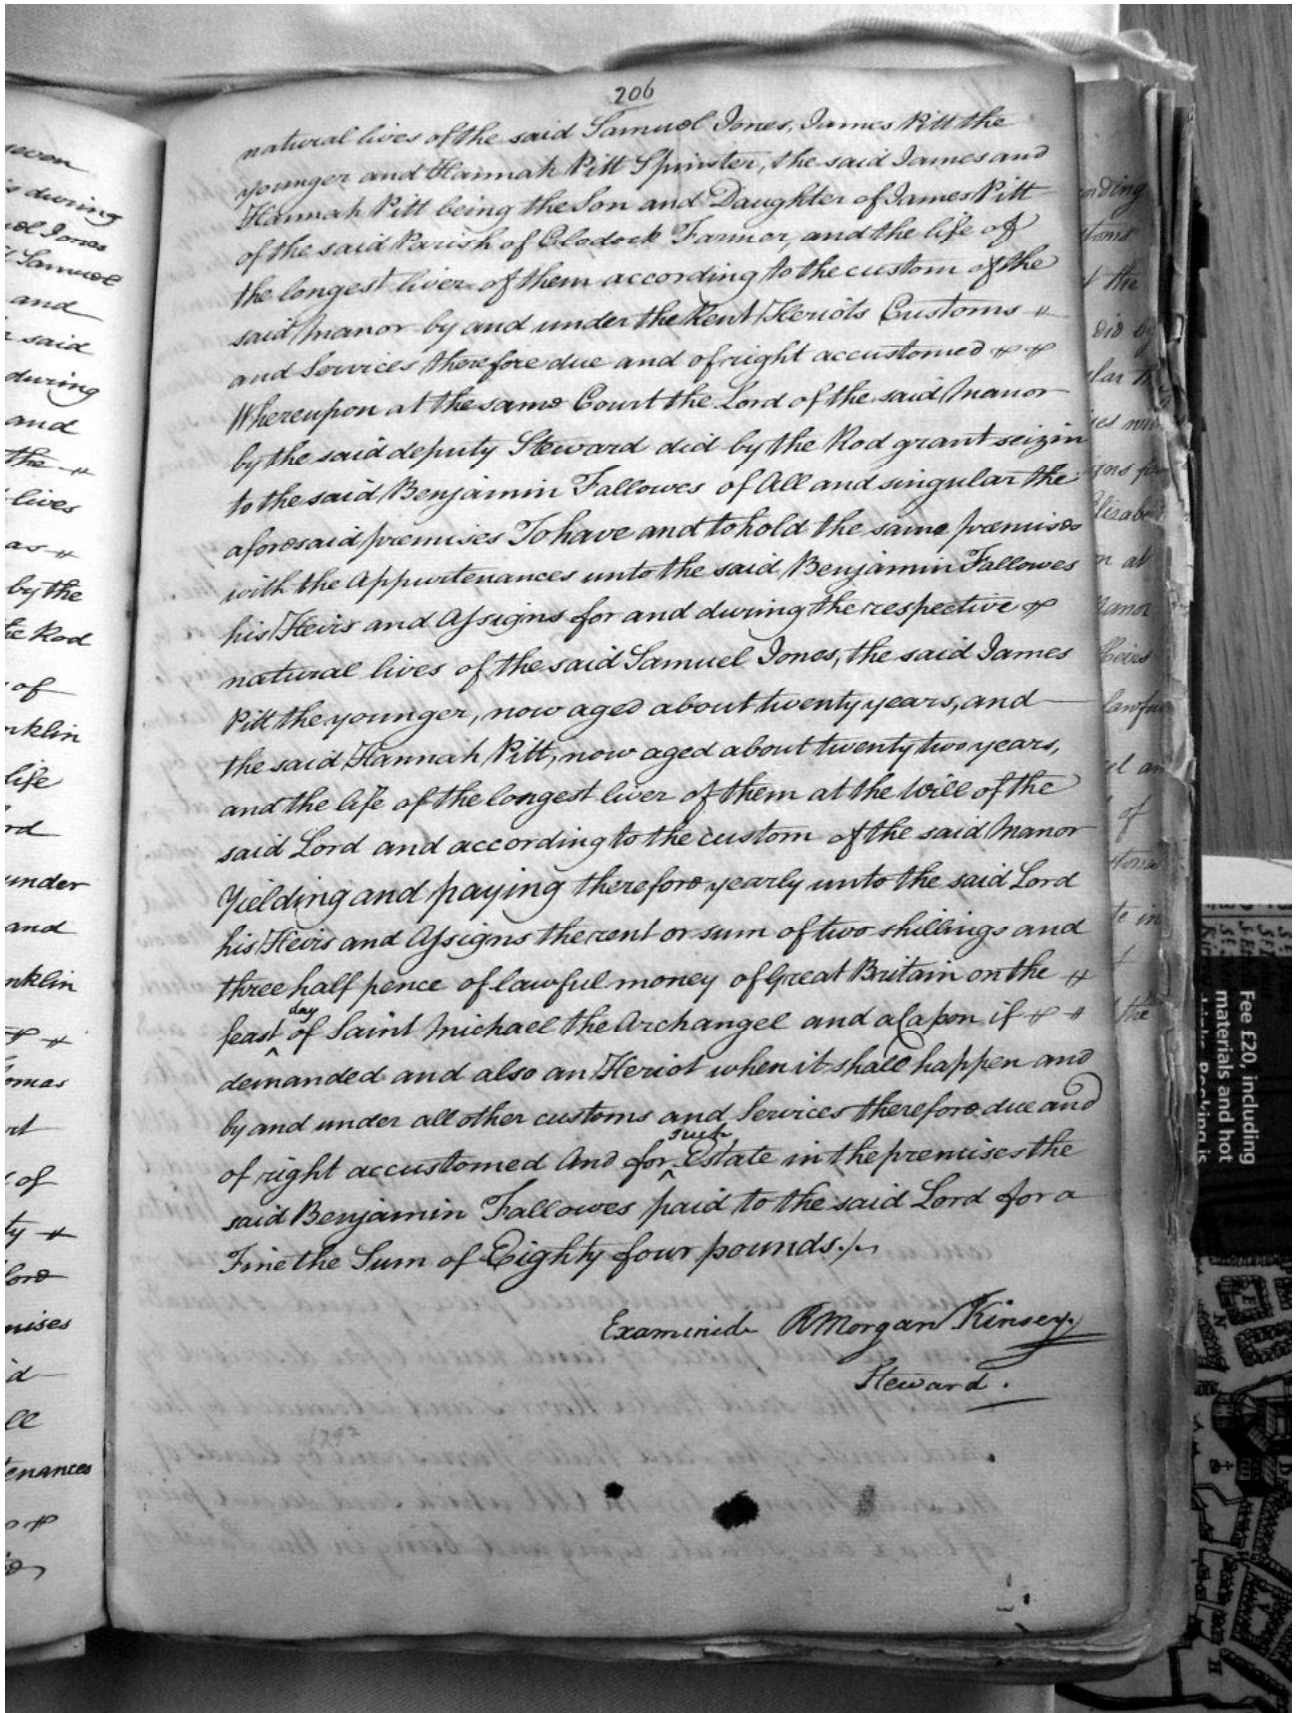 206
natural lives of the said Samuel Jones, James Pitt the
younger and Hannah Pitt Spinster, the said James and
Hannah Pitt being the Son and Daughter of James Pitt
of the said Parish of Clodock Farmer, and the life of
the longest liver of them according to the custom of the
said Manor by and under the Rent Heriots Customs
and Services therefore due and of right accustomed
Whereupon at the same Court the Lord of the said Manor
by the said deputy Steward did by the Rod grant seizin
to the said Benjamin Fallowes of All and singular the
aforesaid premises To have and to hold the same premises
with the Appurtenances unto the said Benjamin Fallowes
his Heirs and Assigns for and during the respective
natural lives of the said Samuel Jones, the said James
Pitt the younger, now aged about twenty years, and
the said Hannah Pitt, now aged about twenty two years,
and the life of the longest liver of them at the Will of the
said Lord and according to the custom of the said Manor
Yielding and paying therefore yearly unto the said Lord
his Heirs and Assigns the rent or sum of two shillings and
three half pence of lawful money of Great Britain on the
feast day of Saint Michael the Archangel and a Capon if
demanded and also an Heriot when it shall happen and
by and under all other customs and Services therefore due and
of right accustomed And for such Estate in the premises the
said Benjamin Fallowes paid to the said Lord for a
Fine the Sum of Eighty four pounds./.
Examined R Morgan Kinsey.
Steward.
seven
during
Jones
Samuel
and
said
during
and
the
lives
as
by the
Rod
of
life
under
and
of
enances
the
at
Manor
Heirs
of
Fee £20, including
materials and hot